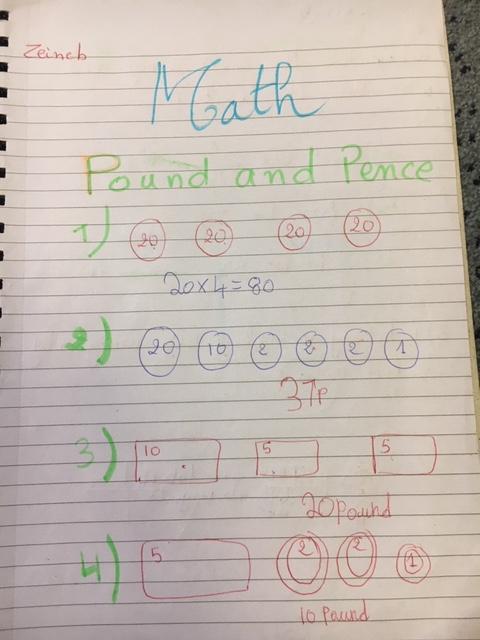 Zeineb
Math
Pound and Pence
1) 20 20 20 20
20x4=80
2) 20 10 2 2 2 1
37p
3) 10 5 5
20 pound
4) 5 2 2 1
10 pound